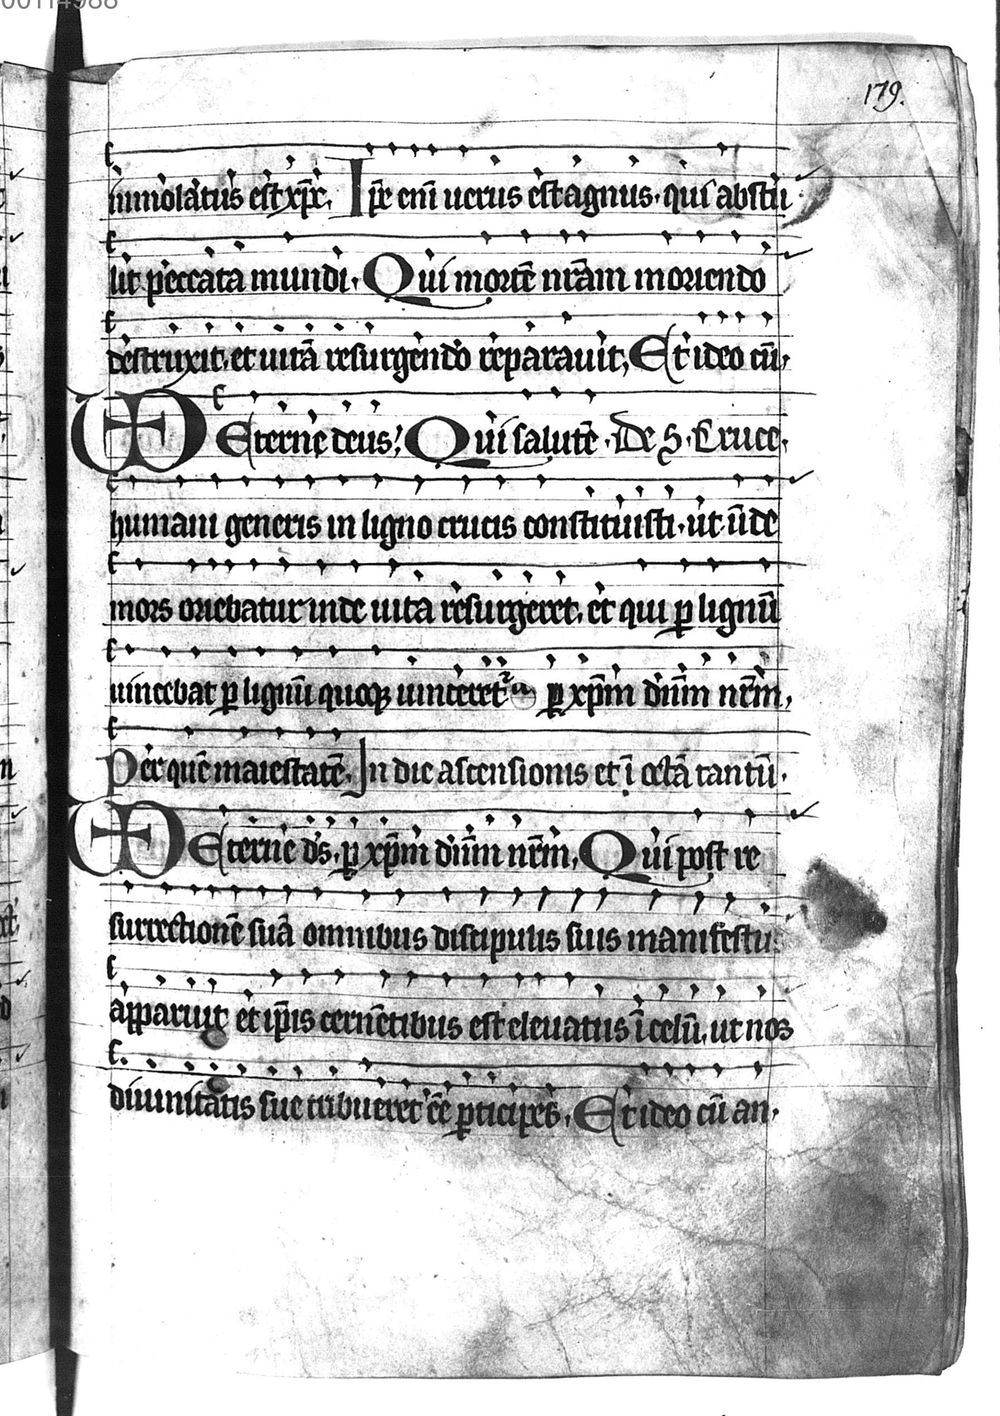 00114988
179.
inmolatus est xp̄c. Ip̄e eni̅ uerus est agnus. qui abstu
lit peccata mundi. Qui morte̅ nr̅am moriendo
destruxit. et uita̅ resurgendo reparauit, Et ideo cu̅.
Eterne deus. Qui salute̅. De S. Cruce.
humani generis in ligno crucis constituisti. ut un̅de
mors oriebatur inde uita resurgeret. et qui ꝑ lignu̅
uincebat ꝑ lignu̅ quoqꝫ uinceret᷑ ꝑ xp̅m dn̅m nr̅m.
Per que̅ maiestate̅. In die ascensionis et i̅ octa̅ tantu̅.
Eterne ds̅. ꝑ xp̅m dn̅m nr̅m. Qui post re
surrectione̅ sua̅ omnibus discipulis suis manifestus
apparuit et ip̅is cerne̅tibus est eleuatus i̅ celu̅. ut nos
diuinitatis sue tribueret e̅e ꝑticipes. Et ideo cu̅ an.